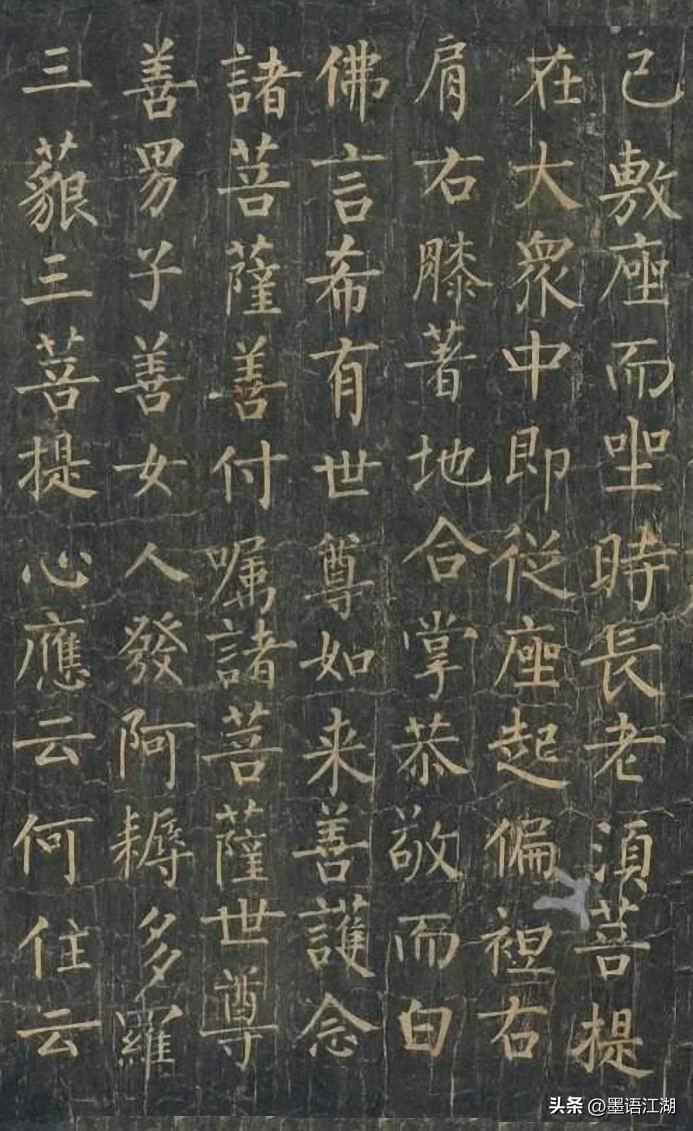 已敷座而坐時長老湏菩提
在大衆中即從座起偏袒右
肩右膝著地合掌恭敬而白
佛言希有世尊如来善護念
諸菩薩善付嘱諸菩薩世尊
善男子善女人發阿耨多羅
三藐三菩提心應云何住云
头条 @墨语江湖